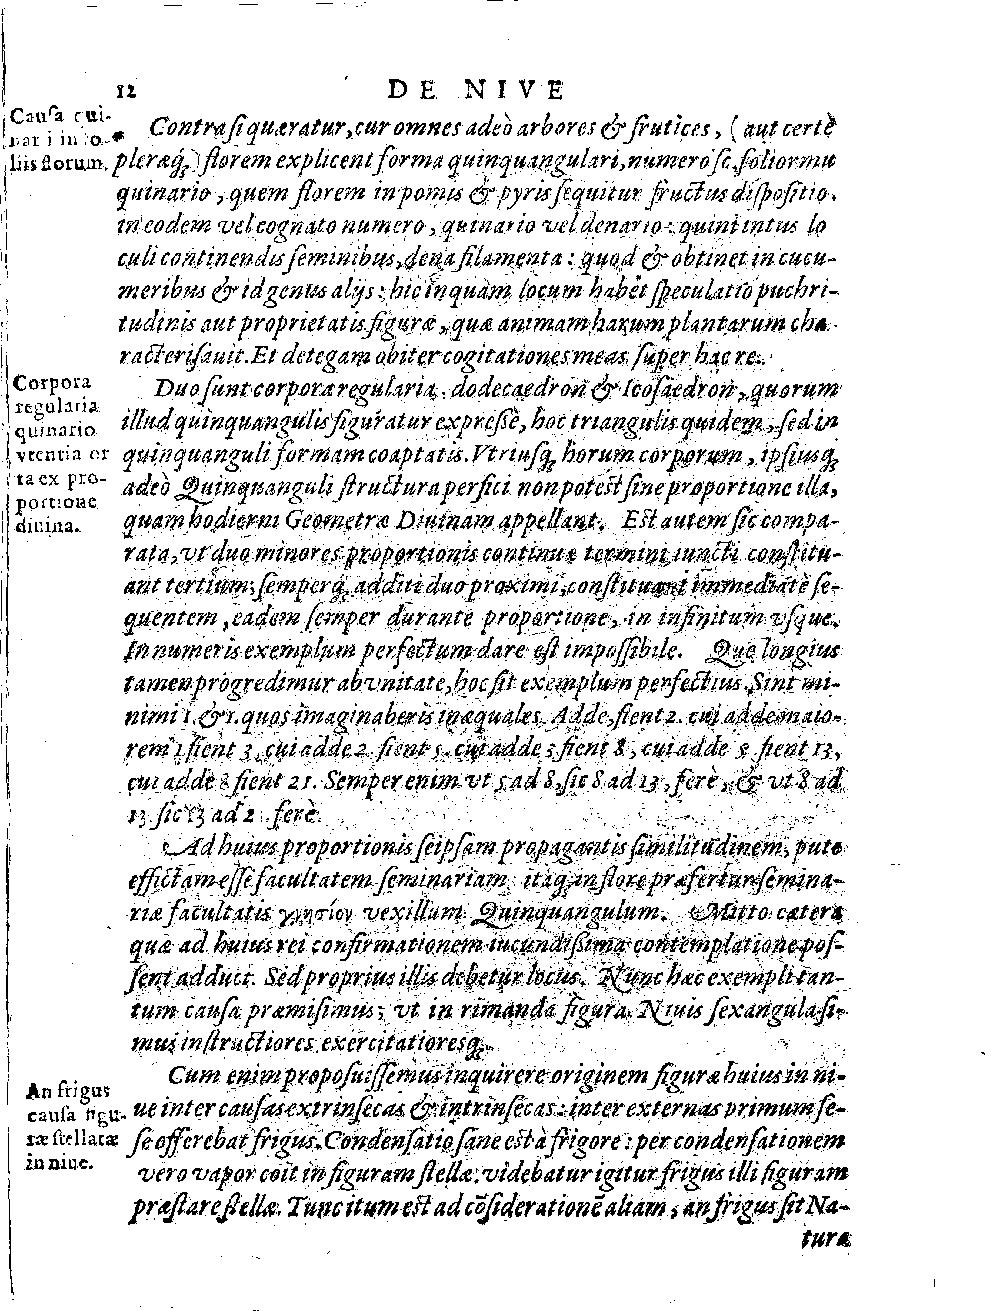 12 DE NIVE
Cauſa qui-
nari in fo-
liis florum.
Contra ſi quæratur, cur omnes adeò arbores & frutices, (aut certè
pleræq;) florem explicent forma quinquangulari, numero ſc. foliorum
quinario, quem florem in pomis & pyris ſequitur fructus diſpoſitio.
in eodem vel cognato numero, quinario vel denario: quini intus lo
culi continendis ſeminibus, dena filamenta: quod & obtinet in cucu-
meribus & id genus alijs: hic inquam locum habet ſpeculatio puchri-
tudinis aut proprietatis figuræ, quæ animam harum plantarum cha-
racteriſauit. Et detegam obiter cogitationes meas ſuper hac re.
Corpora
regularia
quinario
vtentia or
ta ex pro-
portione
diuina.
Duo ſunt corpora regularia, dodecaedron & Icoſaedron, quorum
illud quinquangulis figuratur expreſſè, hoc triangulis quidem, ſed in
quinquanguli formam coaptatis. Vtriuſq; horum corporum, ipſiusq;
adeò Quinquanguli ſtructura perfici non poteſt ſine proportione illa,
quam hodierni Geometræ Diuinam appellant. Eſt autem ſic compa-
rata, vt duo minores proportionis continuæ termini iuncti conſtitu-
ant tertium; ſemperq; additi duo proximi, conſtituant immediatè ſe-
quentem, eadem ſemper durante proportione, in infinitum vſque.
In numeris exemplum perfectum dare eſt impoſſibile. Quo longius
tamen progredimur ab vnitate, hoc fit exemplum perfectius. Sint mi-
nimi 1. & 1. quos imaginaberis inæquales. Adde, fient 2. cui adde maio-
rem 1 fient 3, cui adde 2 fient 5. cui adde 3 fient 8, cui adde 5 fient 13,
cui adde 8 fient 21. Semper enim vt 5 ad 8, ſic 8 ad 13, ferè, & vt 8 ad
13 ſic 13 ad 2 . ferè.
Ad huius proportionis ſeipſam propagantis ſimilitudinem, puto
effictam eſſe facultatem ſeminariam, itaq; in flore præfertur ſemina-
riæ facultatis γνησίον vexillum Quinquangulum. Mitto cætera
quæ ad huius rei confirmationem iucundißima contemplatione poſ-
ſent adduci. Sed proprius illis debetur locus. Nunc hæc exempli tan-
tum cauſa præmiſimus; vt in rimanda figura Niuis ſexangula ſi-
mus inſtructiores, exercitatioresq;.
An frigus
cauſa figu-
ræ ſtellatæ
in niue.
Cum enim propoſuiſſemus inquirere originem figuræ huius in ni-
ue inter cauſas extrinſecas & intrinſecas: inter externas primum ſe-
ſe offerebat frigus. Condenſatio ſane eſt à frigore: per condenſationem
vero vapor coit in figuram ſtellæ: videbatur igitur frigus illi figuram
præſtare ſtellæ. Tunc itum eſt ad cõſiderationẽ aliam, an frigus ſit Na-
turæ